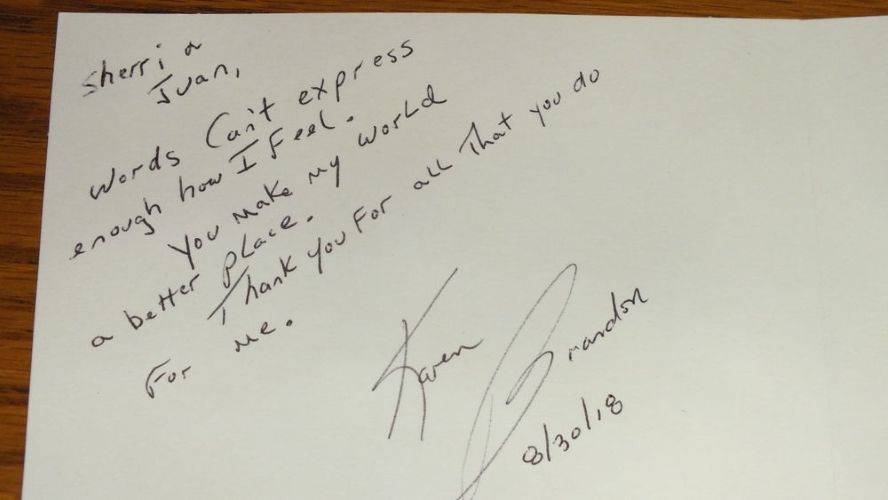 Sherri &
Juan,
Words Can't express
enough how I Feel.
You make my world
a better place.
Thank you For all That you do
For me.
Karen
Brandon
8/30/18